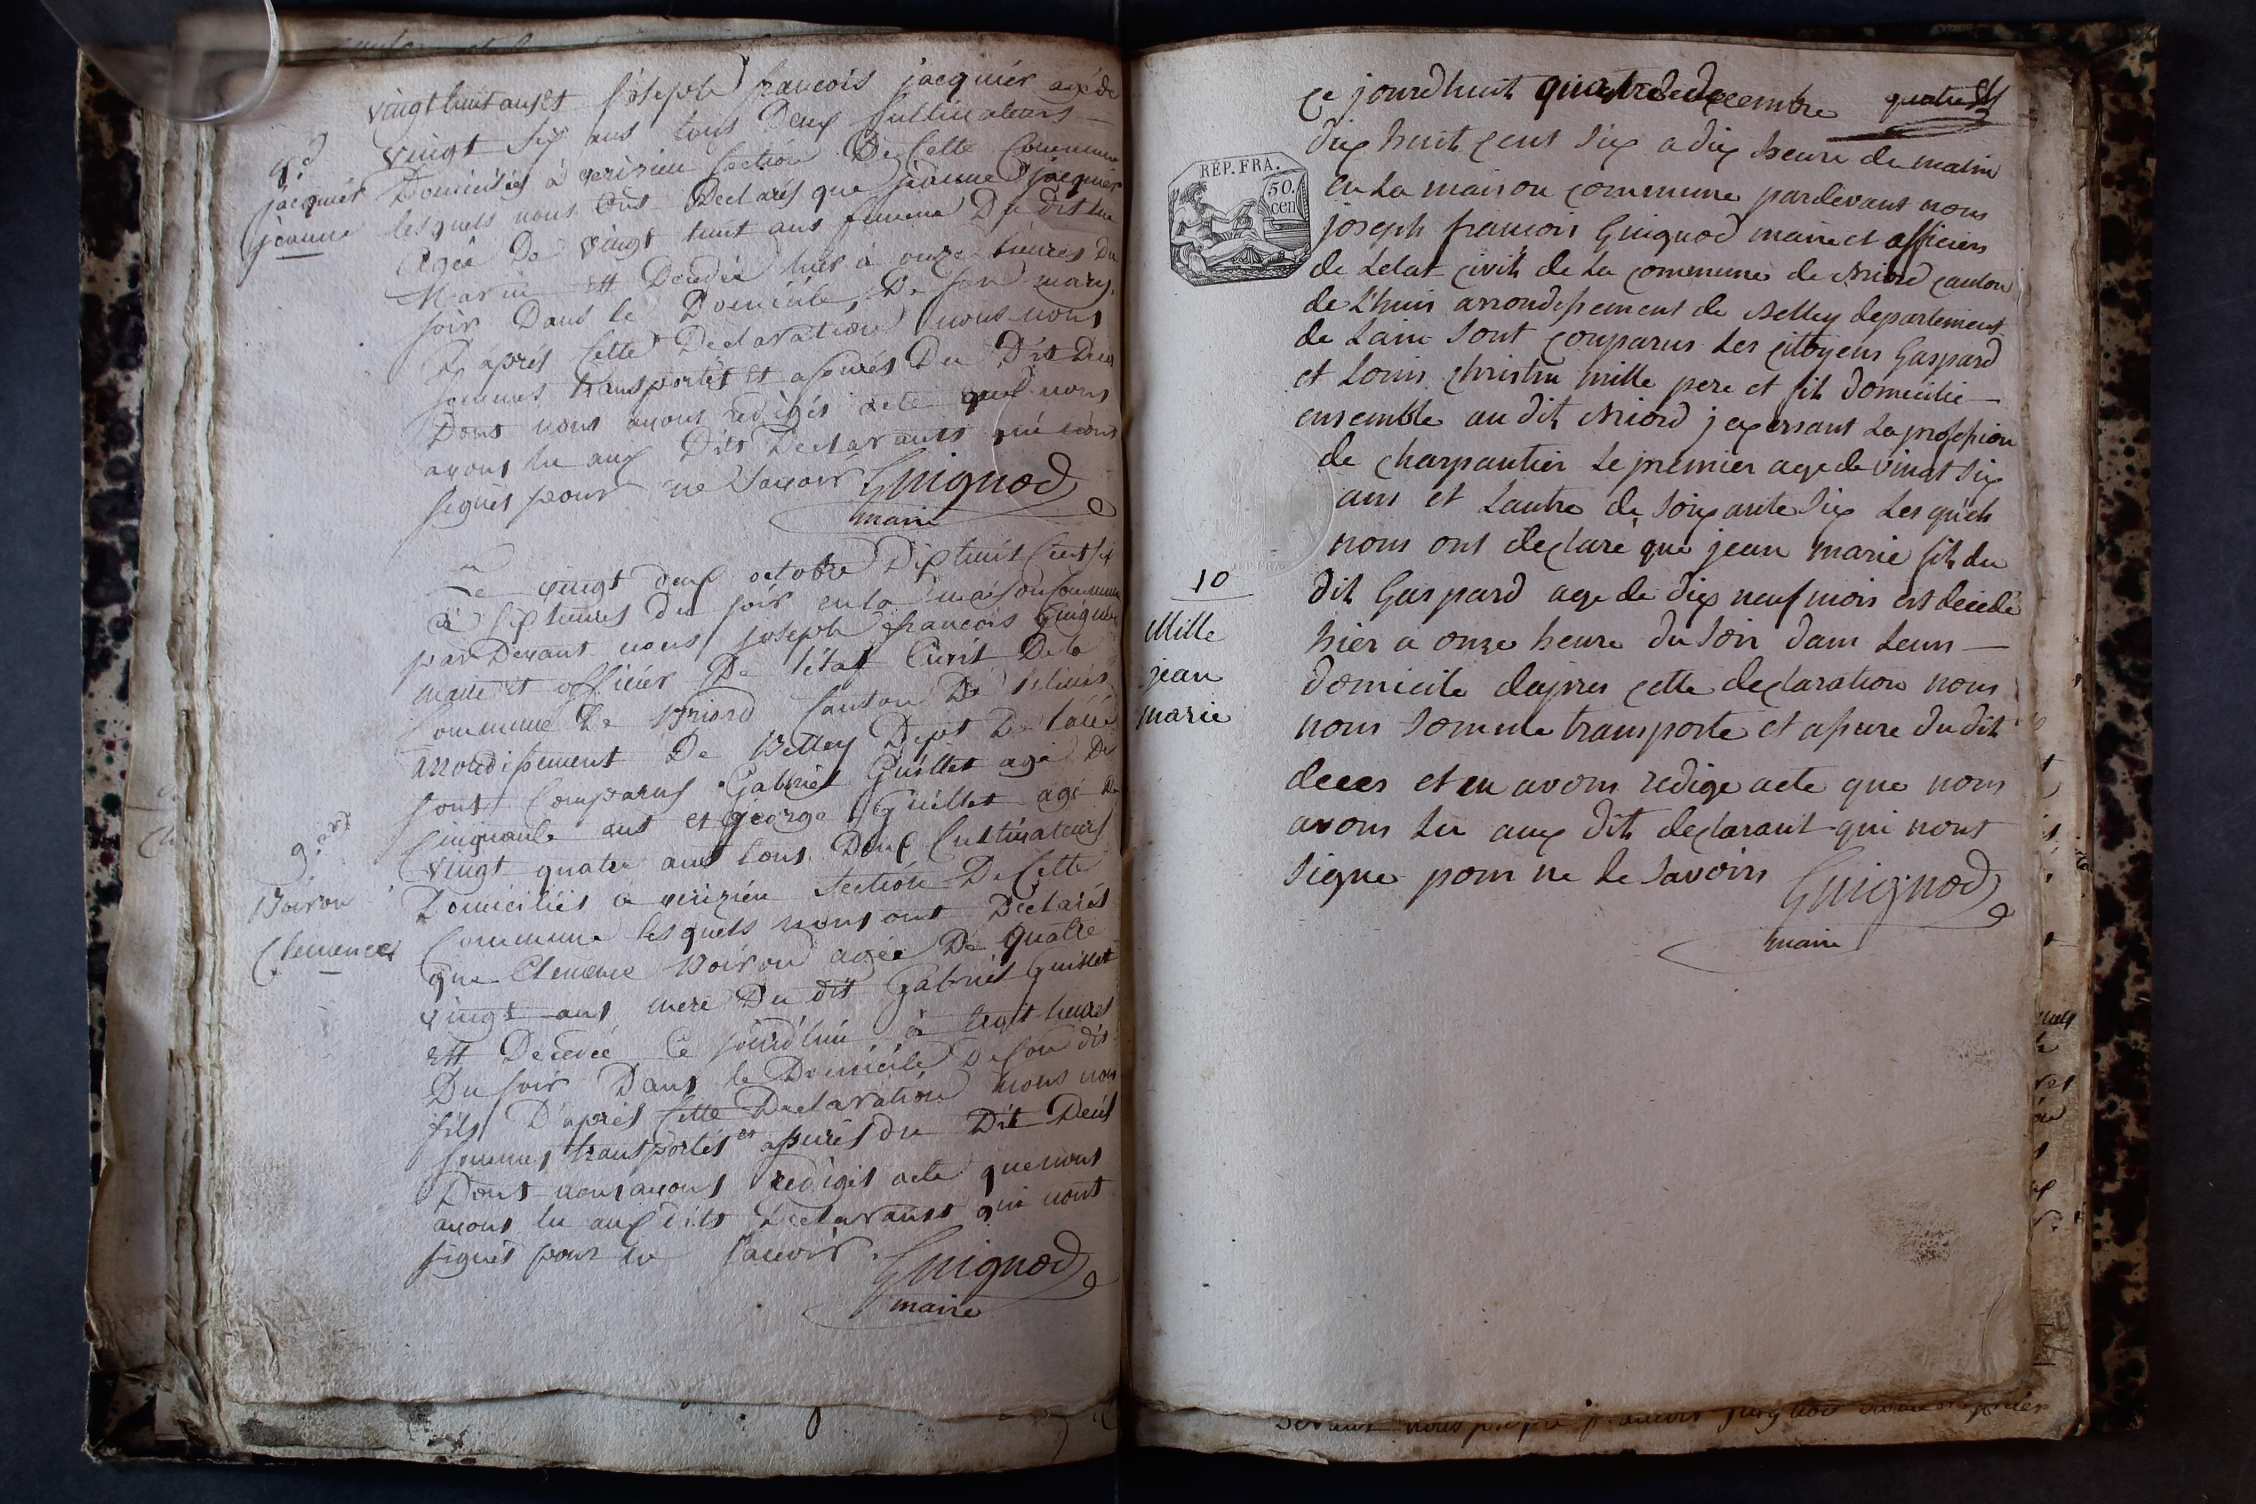 vingt huit ans et joseph francois jacquier agé de
vingt six ans tous deux Cultivateurs
Domiciliés à verizieu section De Cette Commune
lesquels nous ont Declarés que jeanne jacquier
Agée De vingt huit ans femme Du dit
Marin est Décédée hier à onze heures Du
soir Dans le Domicile De son mary,
D'après Cette Declaration nous nous
sommes transportés et assurés Du Dit Deces
Dont nous avons redigés acte que nous
avons lu aux Dits Declarants qui n'ont
signés pour ne Savoir Guignod
maire
jacquier
jeanne
Le vingt deux octobre Dix huit Cent six
à six heures du soir en la maison Commune
par Devant nous joseph francois Guignod
maire et officier De l'état Civil De la
Commune De Briord Canton De Lhuis
arrondissement De Belley Depot De l'ain
sont Comparus Gabriel Guillet agé De
Cinquante ans et george Guillet agé De
vingt quatre ans tous Deux Cultivateurs
Domiciliés a verizieu Section De Cette
Commune lesquels nous ont Déclarés
que Clemence Boiron agée De quatre
vingt ans mere Du dit Gabriel Guillet
est Decedée Ce jourd'hui à heures
Du soir Dans le Domicile De son dit
fils D'après Cette Declaration nous nous
sommes transportés et assurés du Dit Decés
Dont nous avons redigés acte que nous
avons lu aux dits Declarants qui n'ont
signés pour ne Sauvoir. Guignod
maire
9.
Boiron
Clemence
Ce jourdhuit quatre decembre quatre
dix huit cent six a dix heure du matin
en La maison commune pardevant nous
joseph francois Guignod maire et officier
de Letat civil de La commune de Briord canton
de Lhuis arrondissement de Belley departement
de Lain sont comparus Les citoyens Gaspard
et Louis christin mille pere et fils domicilie
ensemble au dit Briord j exersant La profession
de charpantier Le premier age de vingt six
ans et Lautre de soixante six Les quels
nous ont declare que jean marie fils du
dit Gaspard age de dix neuf mois est decede
hier a onze heure du Soir dans Leur
domicile dapres cette declaration nous
nous somme transporte et assure du dit
deces et en avons redige acte que nous
avons Lu aux dits declarant qui nont
Signe pour ne Le Savoirs Guignod
maire
REP. FRA.
50.
cen
10
Mille
jean
marie